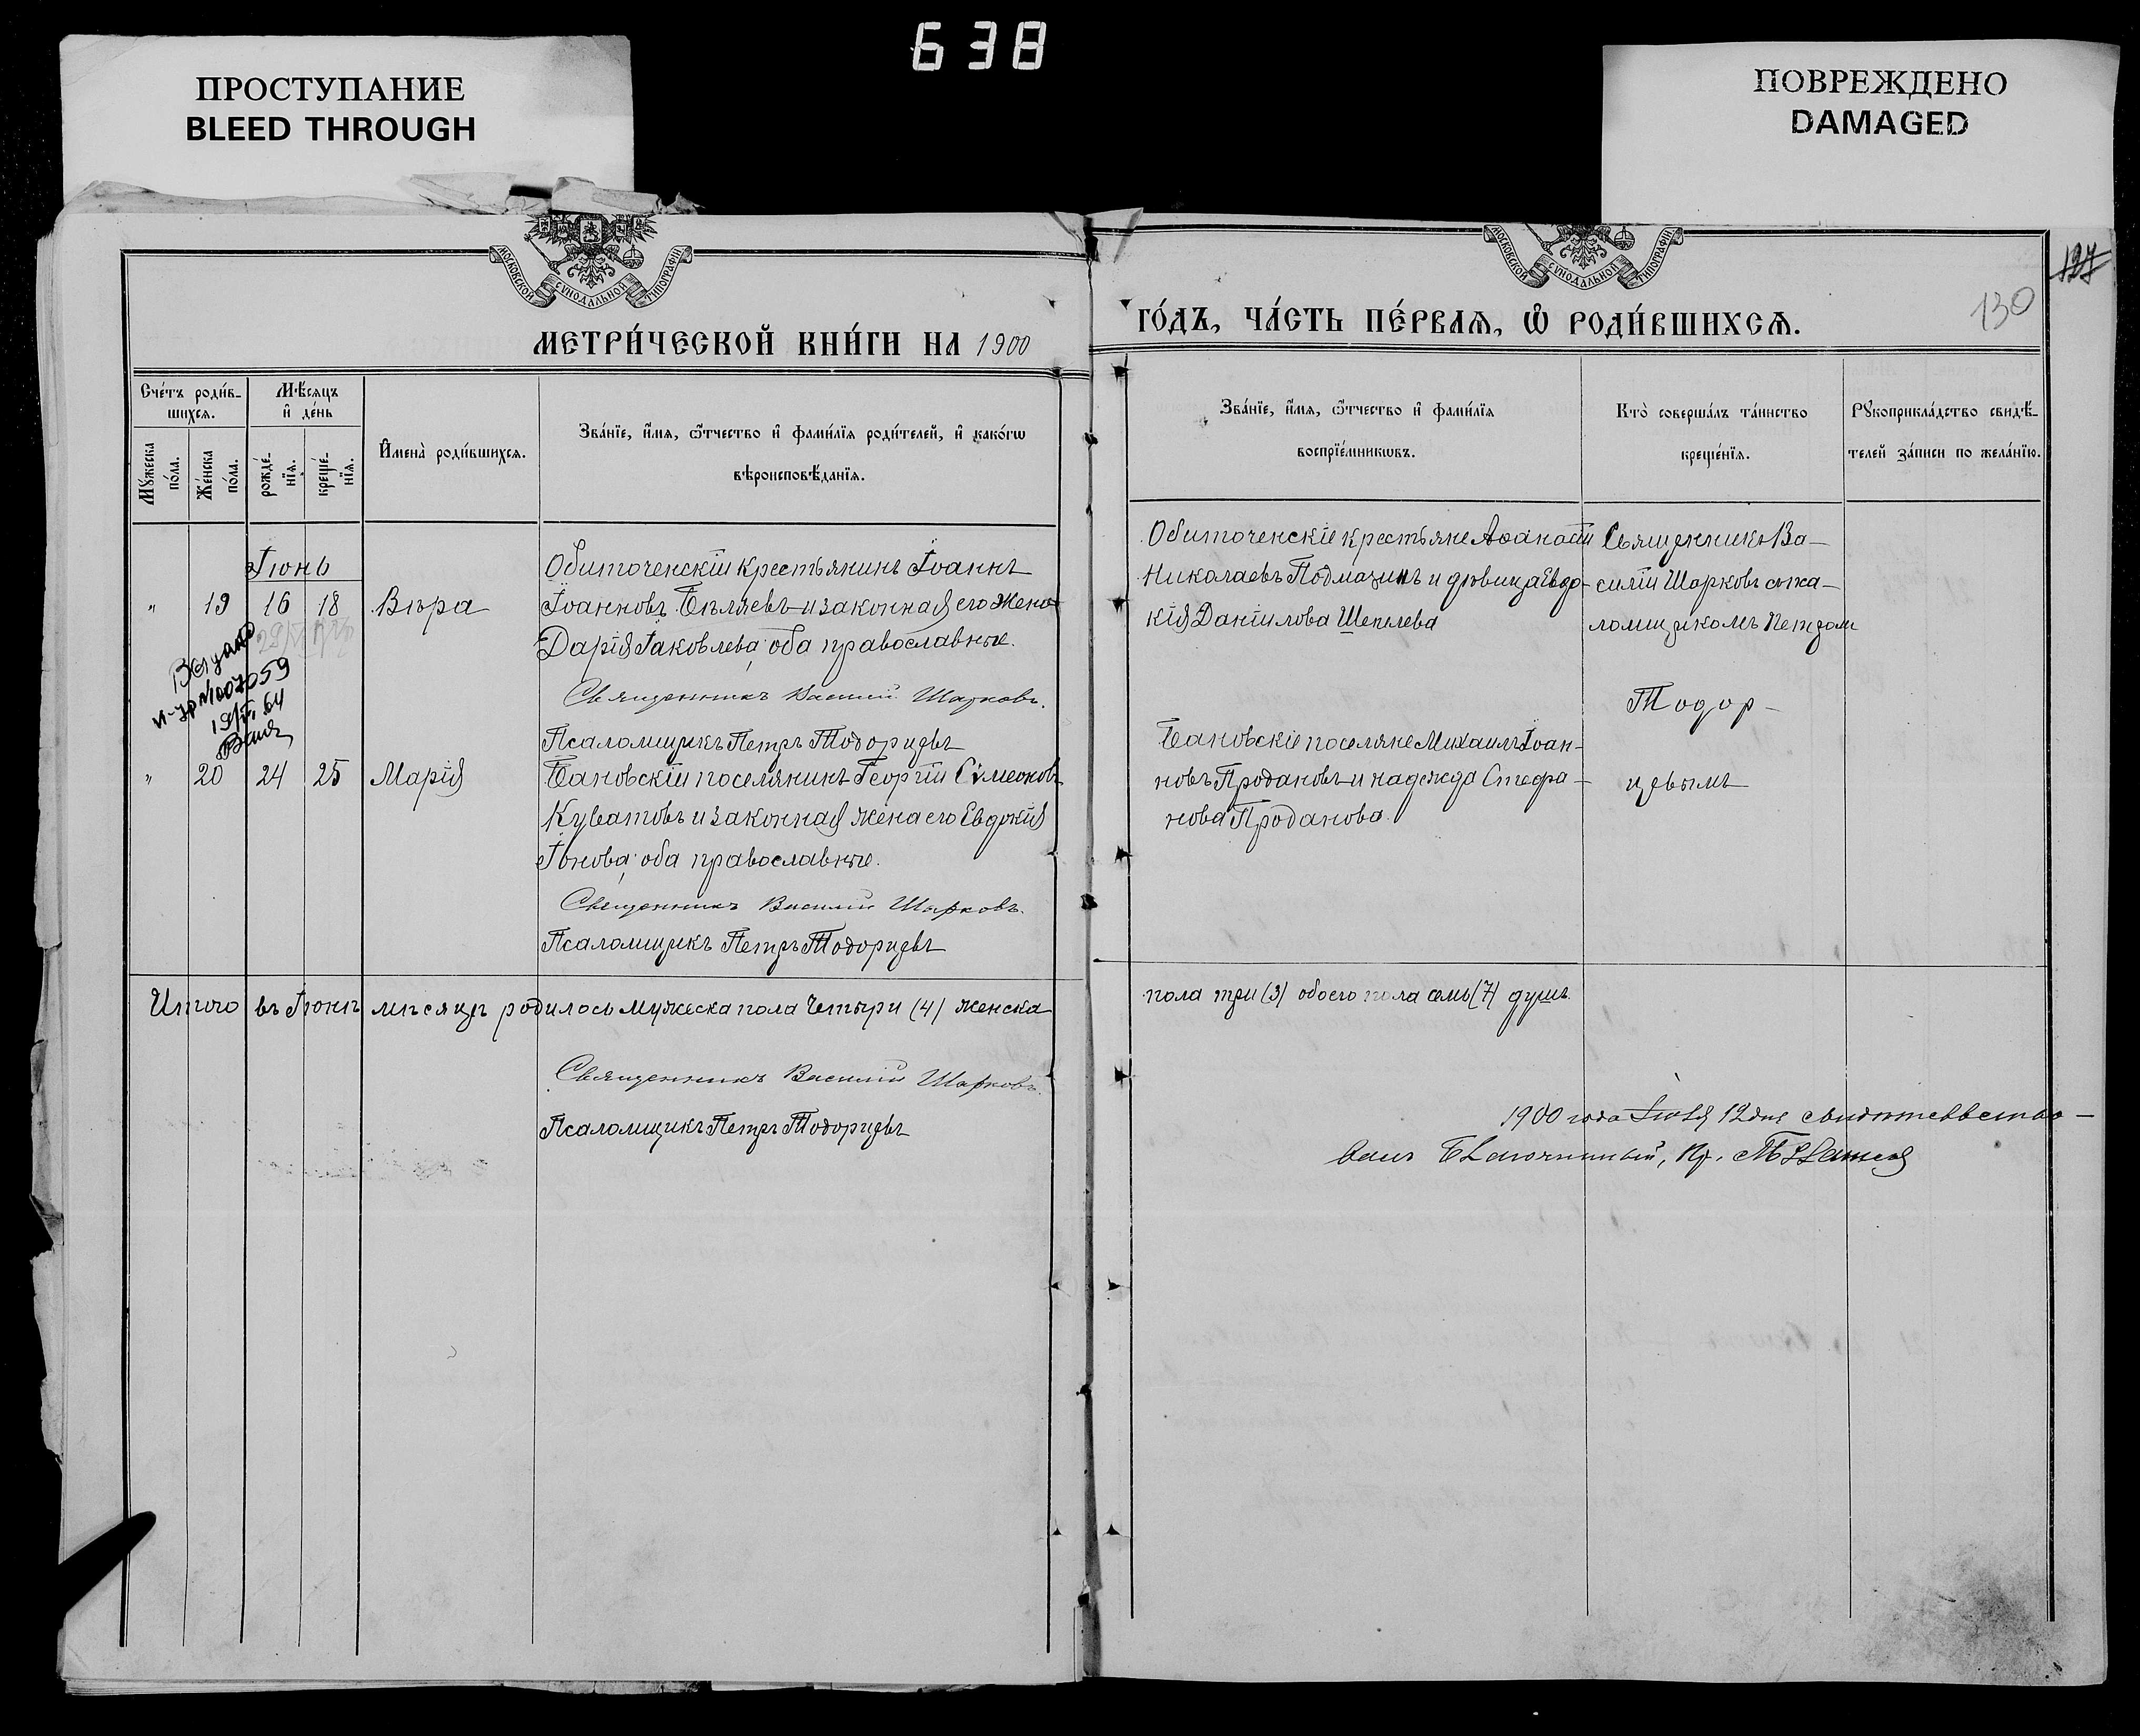 638
ПРОСТУПАНИЕ
BLEED THROUGH
ПОВРЕЖДЕНО
DAMAGED
МОСКОВСКОЙ СѴНОДАЛЬНОЙ ТИПОГРАФІИ
МОСКОВСКОЙ СѴНОДАЛЬНОЙ ТИПОГРАФІИ
127
130
МЕТРИ́ЧЕСКОЙ КНИ́ГИ НА 1900
ГО́ДЪ, ЧА́СТЬ ПЕ́РВАЯ, Ѡ РОДИ́ВШИХСЯ.
Сче́тъ роди́в-
шихся.
Мѣ́сяцъ
и де́нь
Му́жеска
по́ла.
Же́нска
по́ла.
рожде́-
нїя.
креще́-
нїя.
И҆мена̀ роди́вшихся.
Зва́нїе, и҆́мя, ѻ҆́тчество и҆ фами́лїя роди́телей, и҆ како́гѡ
вѣроисповѣ́данїя.
Зва́нїе, и҆́мя, ѻ҆́тчество и҆ фами́лїя
воспрїе́мникѡвъ.
Кто̀ соверша́лъ та́инство
креще́нїя.
Рꙋкоприкла́дство свидѣ́-
телей за́писи по жела́нїю.
Іюнь
" 19 16 18 Вѣра
Обиточенскій крестьянинъ Іоаннъ
Іоанновъ Бѣляевъ и законная его жена
Дарія Іаковлева; оба православные.
Священникъ Василій Шарковъ.
Псаломщикъ Петръ Тодорцевъ
Обиточенскіе крестьяне Аѳанасій
Николаевъ Подмазинъ и дѣвица Евдо-
кія Даніилова Шепелева
Священникъ Ва-
силій Шарковъ съ пса-
ломщикомъ Петромъ
Тодор-
цевымъ
Выдано
№ 007059
64
" 20 24 25 Марія
Бановскій поселянинъ Георгій Сѵмеоновъ
Куватовъ и законная жена его Евдокія
Іонова; оба православные.
Священникъ Василій Шарковъ.
Псаломщикъ Петръ Тодорцевъ
Бановскіе поселяне Михаилъ Іоан-
новъ Продановъ и Надежда Стефа-
нова Проданова.
Итого въ Іюнѣ мѣсяцѣ родилось мужеска пола четыри (4) женска
пола три (3) обоего пола семь (7) душъ.
Священникъ Василій Шарковъ.
Псаломщикъ Петръ Тодорцевъ
1900 года Іюля 12 дня свидѣтельство-
валъ Благочинный,